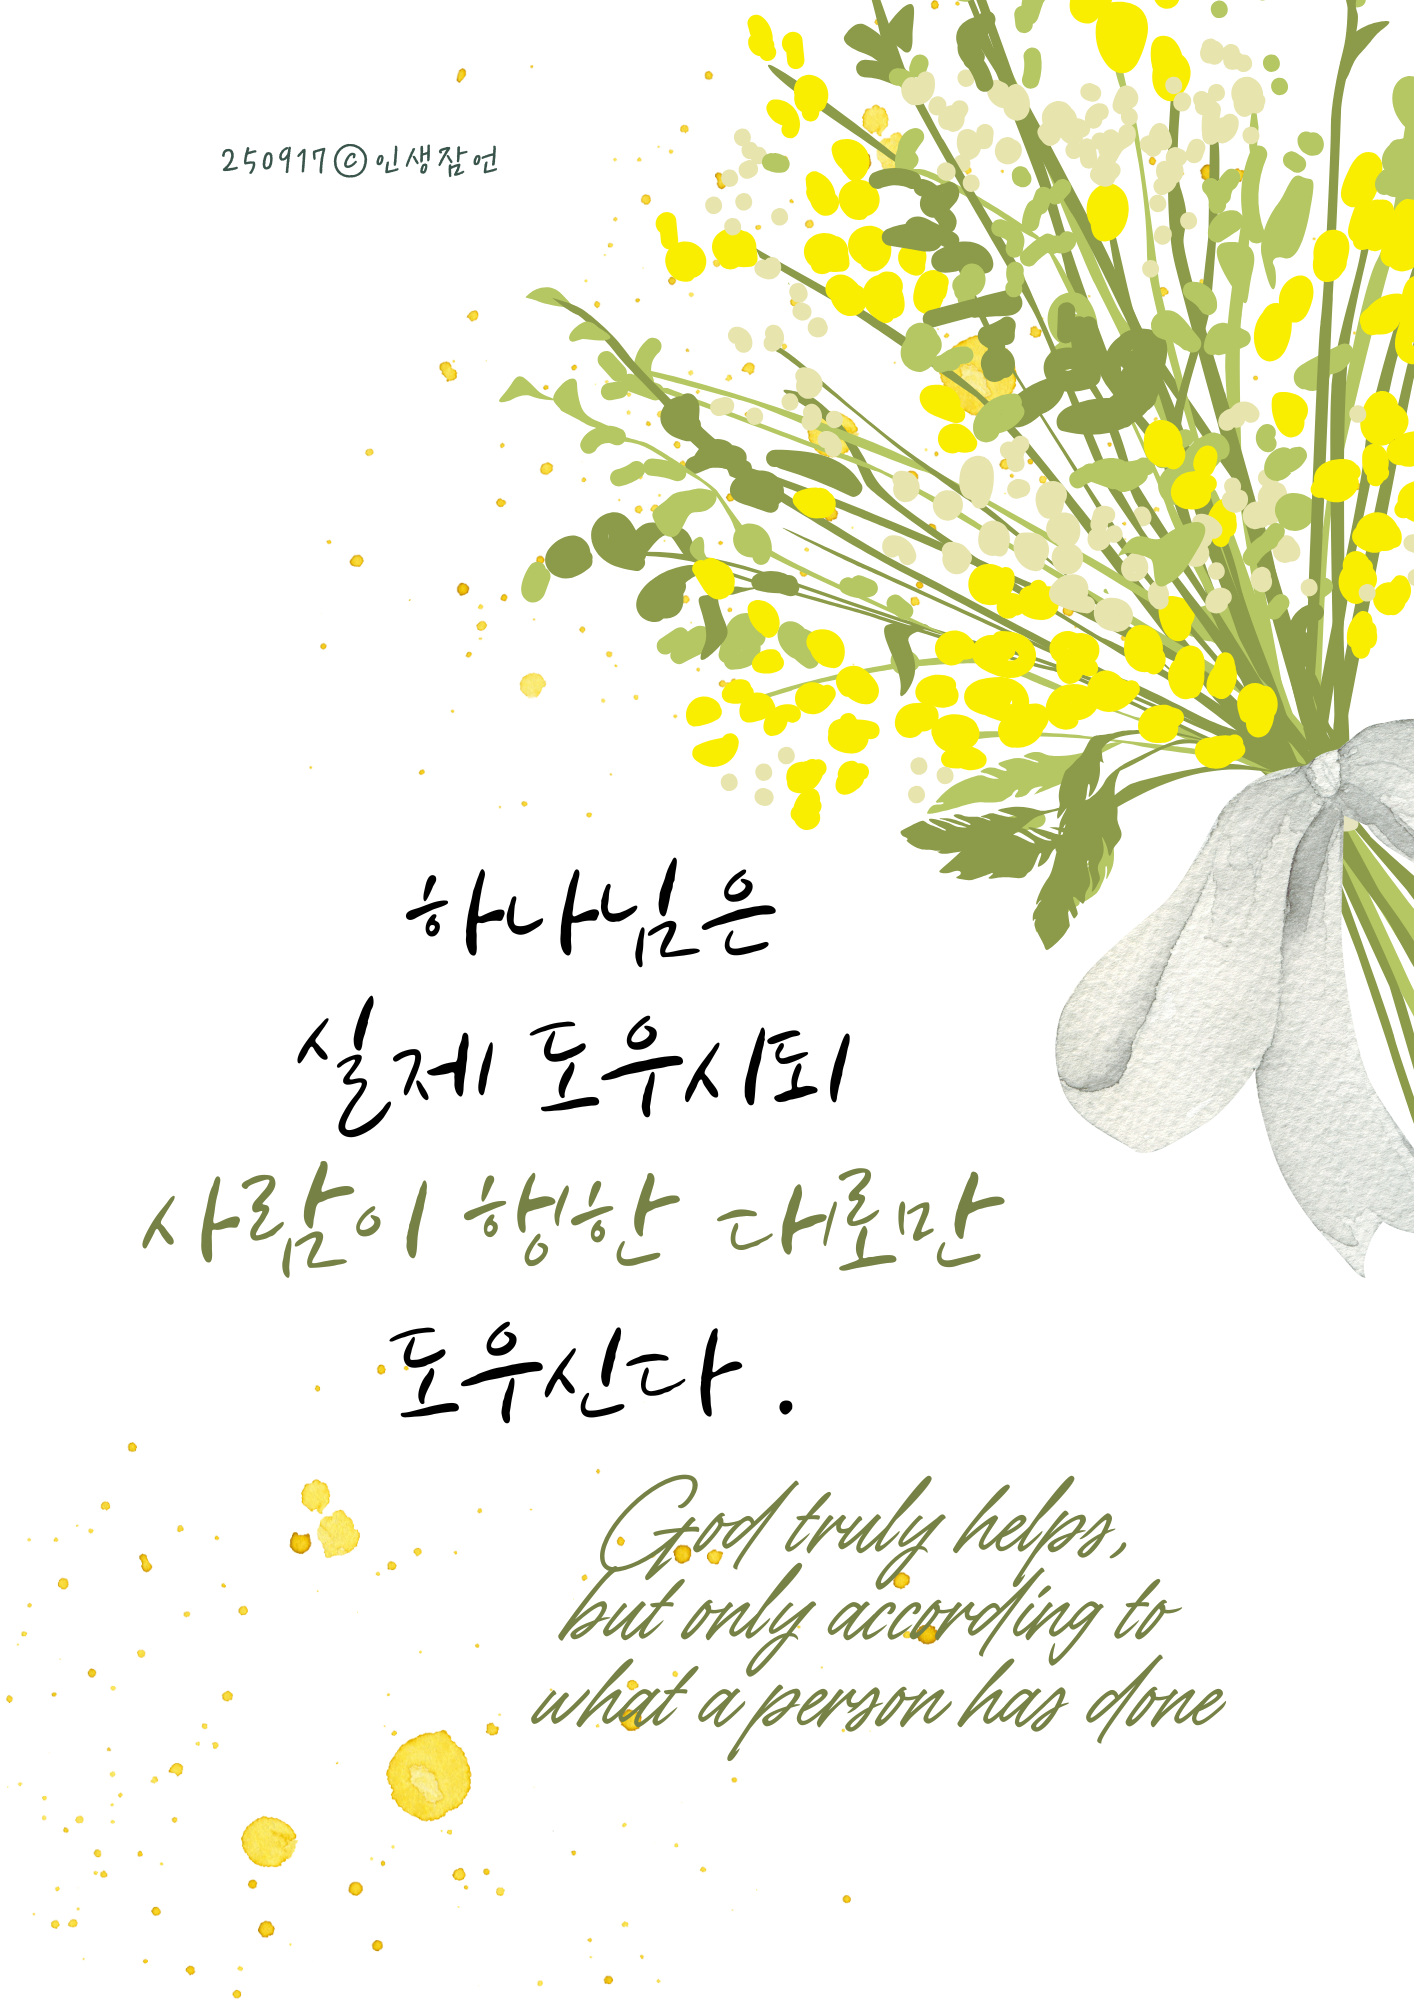 250917ⓒ인생잠언
하나님은
실제 도우시되
사람이 행한 대로만
도우신다 .
God truly helps,
but only according to
what a person has done